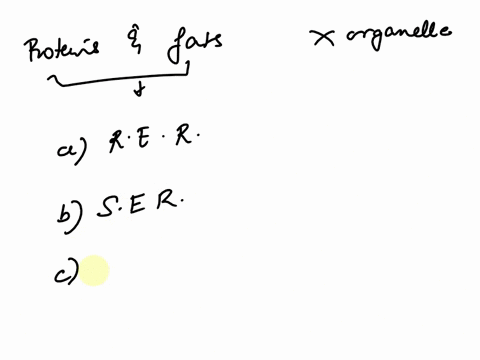 Proteins & fats
X organelle
a) R.E.R.
b) S.E R.
c)